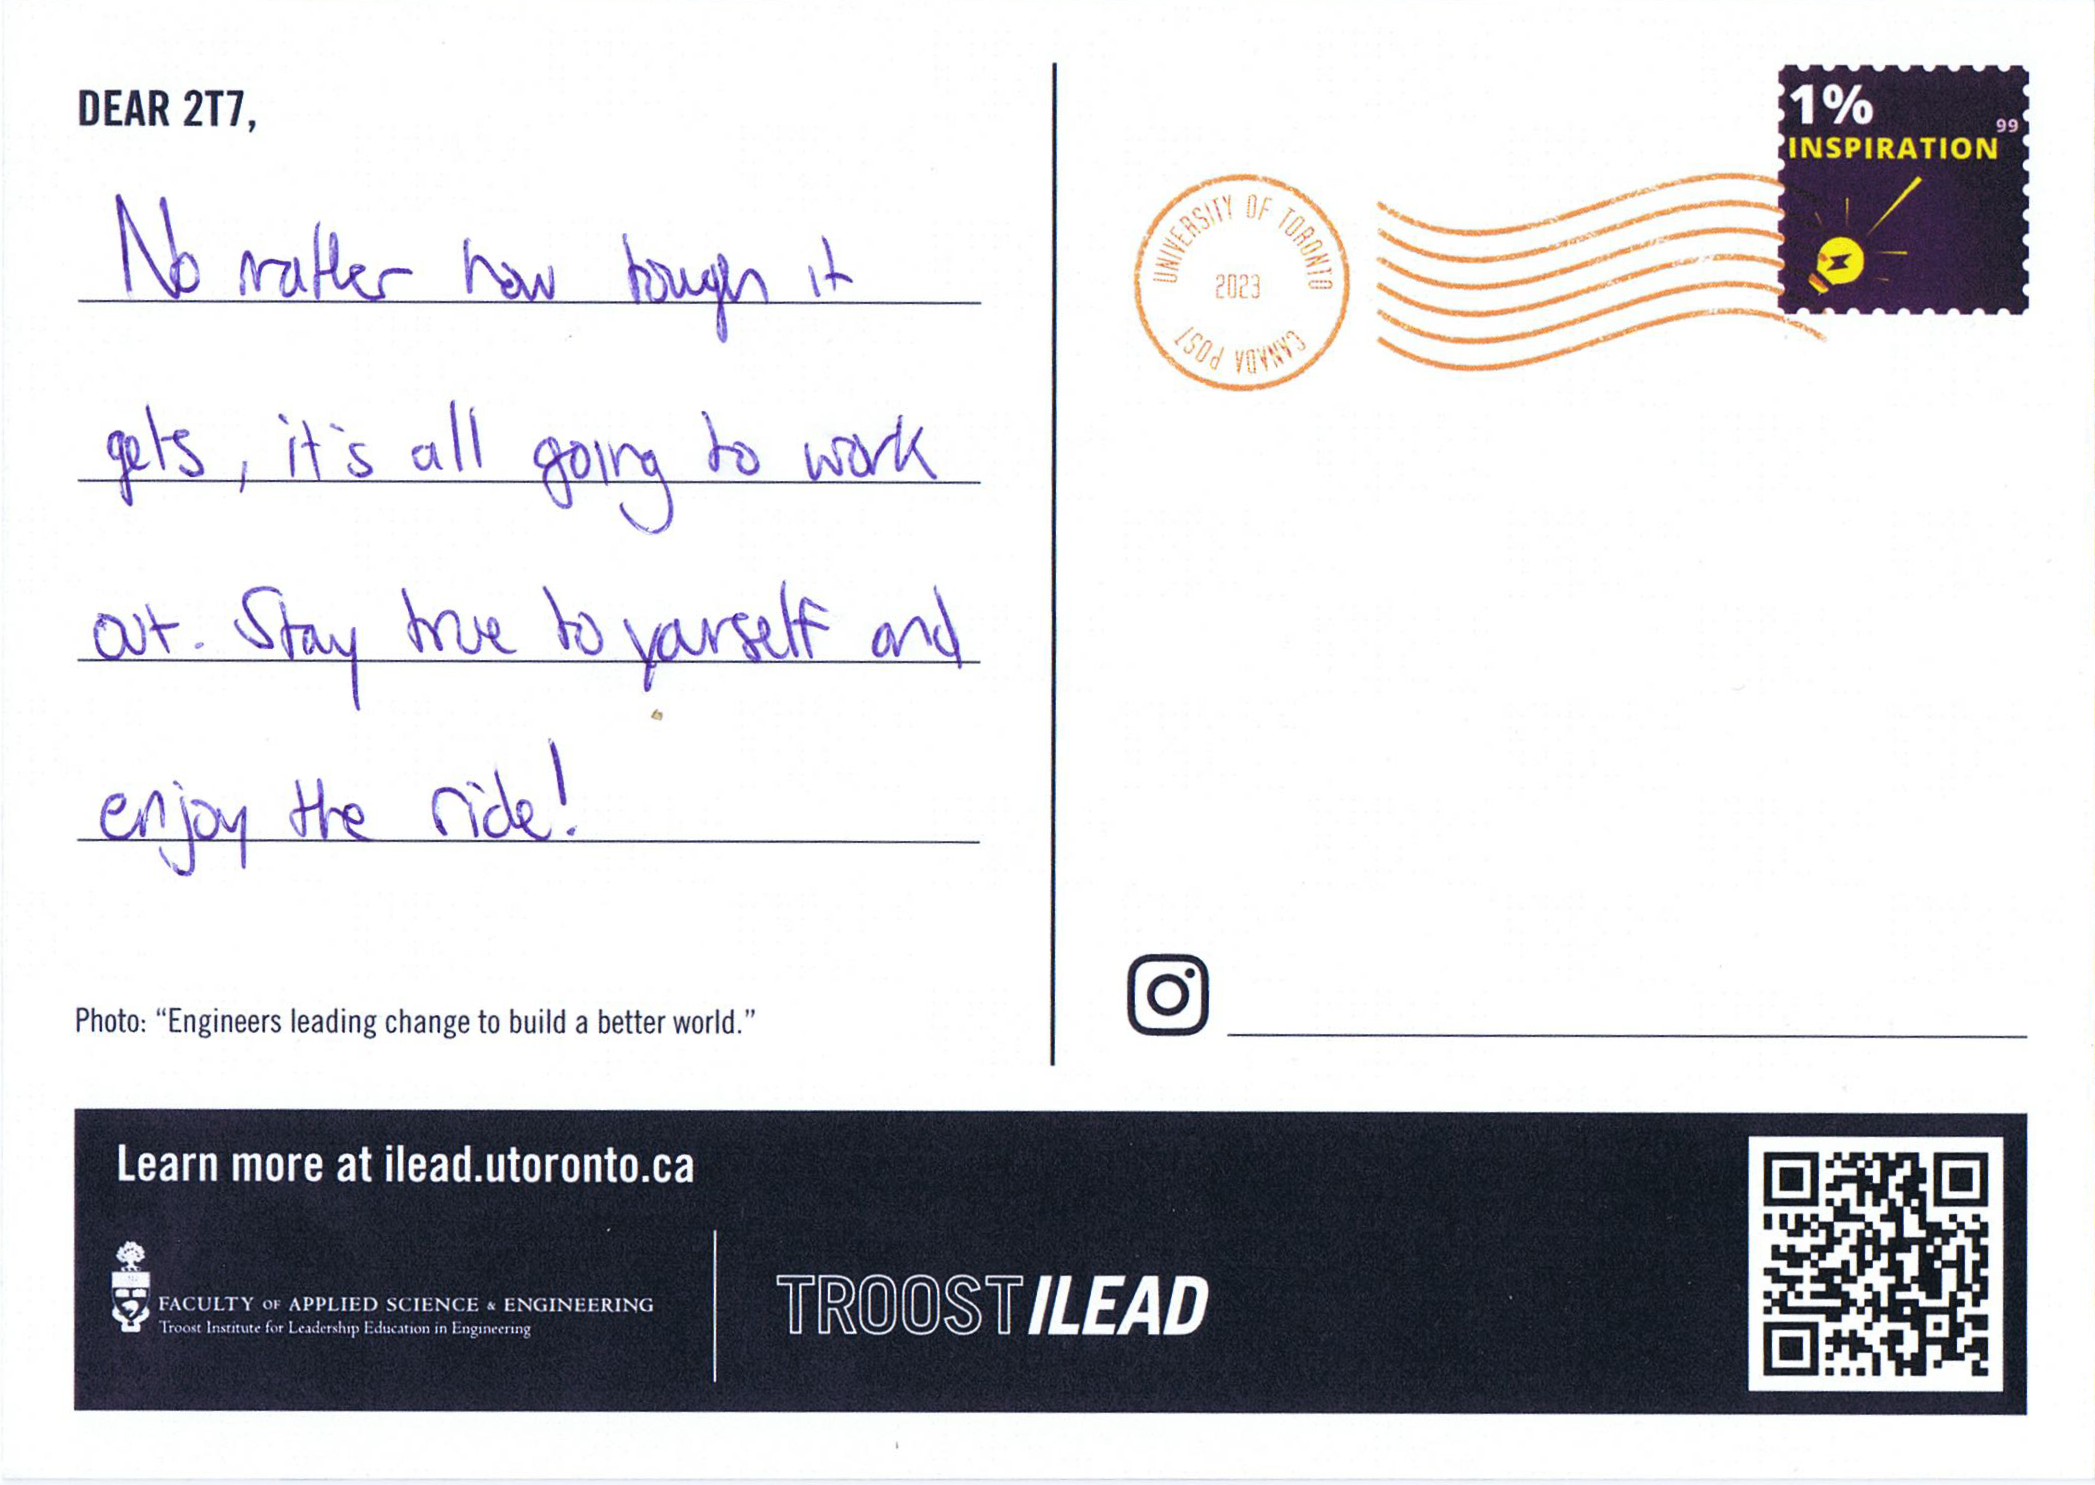 DEAR 2T7,
No matter how tough it
gets, it's all going to work
out. Stay true to yourself and
enjoy the ride!
Photo: “Engineers leading change to build a better world.”
1%
99
INSPIRATION
UNIVERSITY OF TORONTO
2023
CANADA POST
Learn more at ilead.utoronto.ca
FACULTY OF APPLIED SCIENCE & ENGINEERING
Troost Institute for Leadership Education in Engineering
TROOST ILEAD